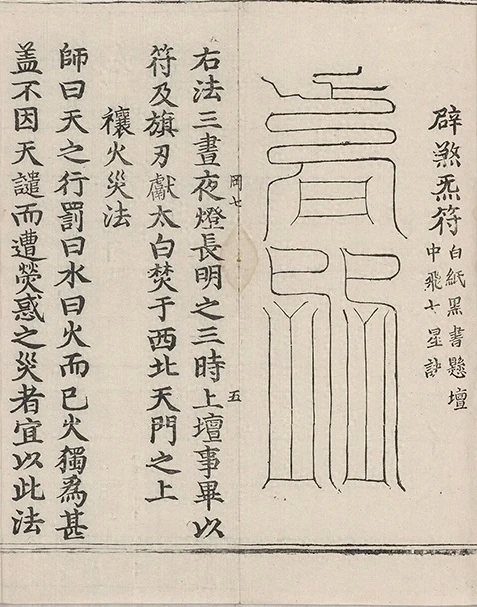 辟煞炁符
白紙黑書懸壇
中飛七星訣
罔七
五
右法三晝夜燈長明之三時上壇事畢以
符及旗刃獻太白焚于西北天門之上
禳火災法
師曰天之行罰曰水曰火而已火獨為甚
盖不因天譴而遭熒惑之災者宜以此法